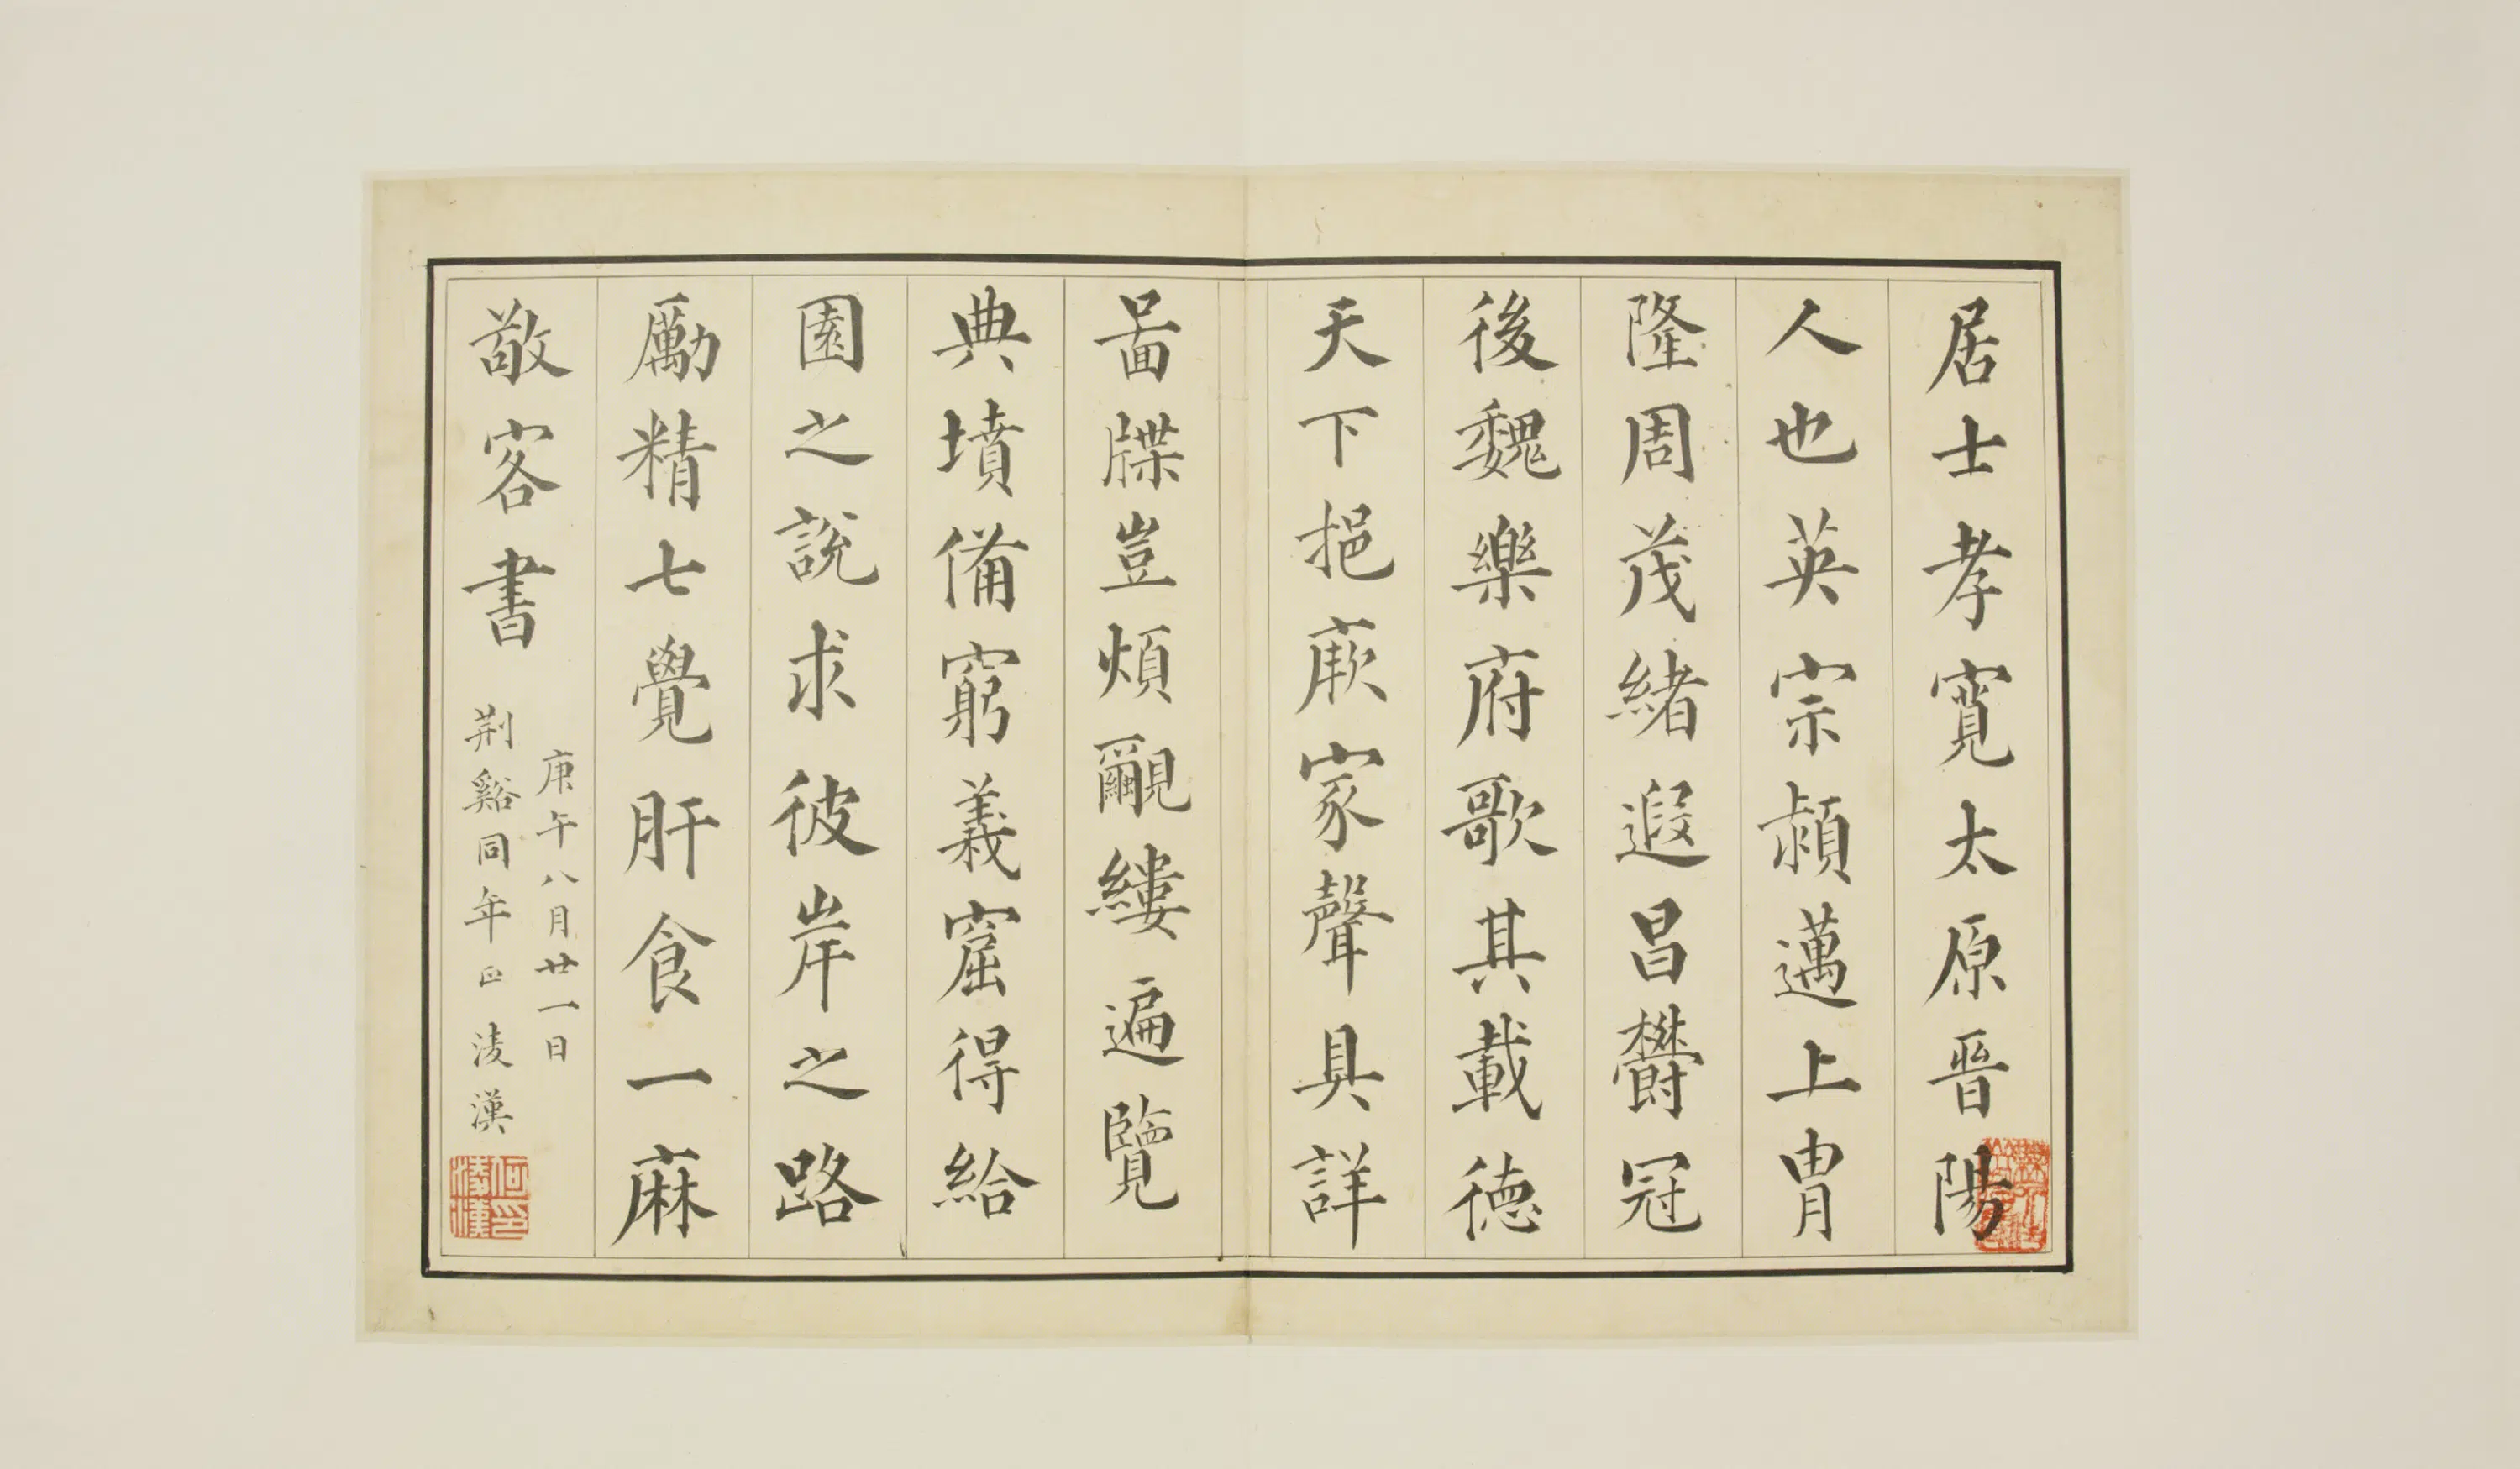 居士孝寬太原晉陽
人也英宗熲邁上冑
隆周茂緒遐昌欝冠
後魏樂府歌其載德
天下挹厥家聲具詳
啚牒豈煩覼縷遍覽
典墳備窮義窟得給
園之說求彼岸之路
勵精七覺肝食一麻
敬客書
庚午八月廿一日
荆谿同年正 淩漢
何淩漢印